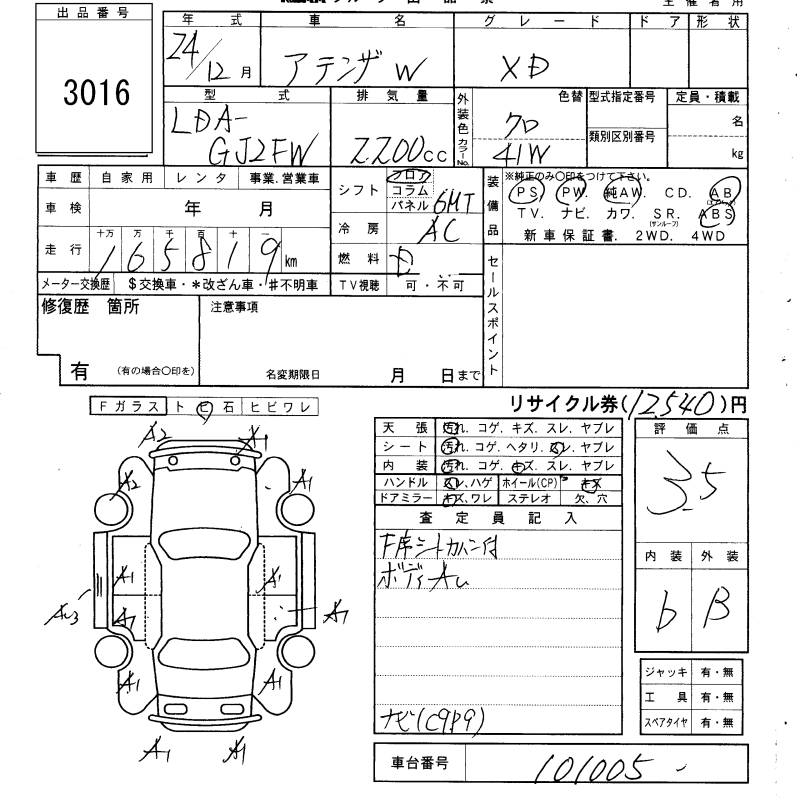 出品番号
3016
年式 車名 グレード ドア 形状
24/12月 アテンザW XD
型式 排気量 外装色 カラーNo. 色替 型式指定番号 定員・積載
LDA-GJ2FW 2200cc クロ 41W 類別区別番号 名 kg
車歴 自家用 レンタ 事業.営業車
車検 年 月
走行 十万 万 千 百 十 一
165819km
メーター交換歴 $交換車・*改ざん車・#不明車
シフト フロア コラム パネル 6MT
冷房 AC
燃料 D
TV視聴 可・不可
装備品 ※純正のみ〇印をつけて下さい。
PS. PW. 純AW. CD. AB
TV. ナビ. カワ. SR. ABS
(サンルーフ)
新車保証書. 2WD. 4WD
セールスポイント
修復歴 箇所
有 (有の場合〇印を)
注意事項
名変期限日 月 日まで
リサイクル券(12,540)円
Fガラス トビ石 ヒビワレ
A2 A1
A2 A1
A1 A1
A1 A1
A1 A1
A1 A1
天張 汚れ、コゲ、キズ、スレ、ヤブレ
シート 汚れ、コゲ、ヘタリ、スレ、ヤブレ
内装 汚れ、コゲ、キズ、スレ、ヤブレ
ハンドル スレ、ハゲ ホイール(CP) キズ
ドアミラー キズ、ワレ ステレオ 欠、穴
査定員記入
ボディAu
ナビ(C9P9)
評価点
3.5
内装 外装
b B
ジャッキ 有・無
工具 有・無
スペアタイヤ 有・無
車台番号 101005